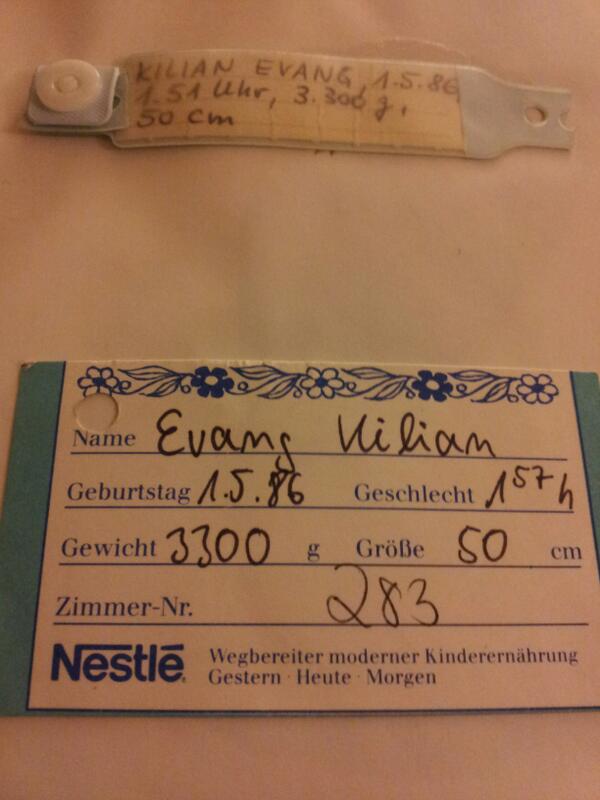 KILIAN EVANG, 1.5.86,
1.51 Uhr, 3.300 g,
50 cm
Name Evang Kilian
Geburtstag 1.5.86 Geschlecht 1 57 h
Gewicht 3300 g Größe 50 cm
Zimmer-Nr. 283
Nestlé Wegbereiter moderner Kinderernährung
Gestern · Heute · Morgen